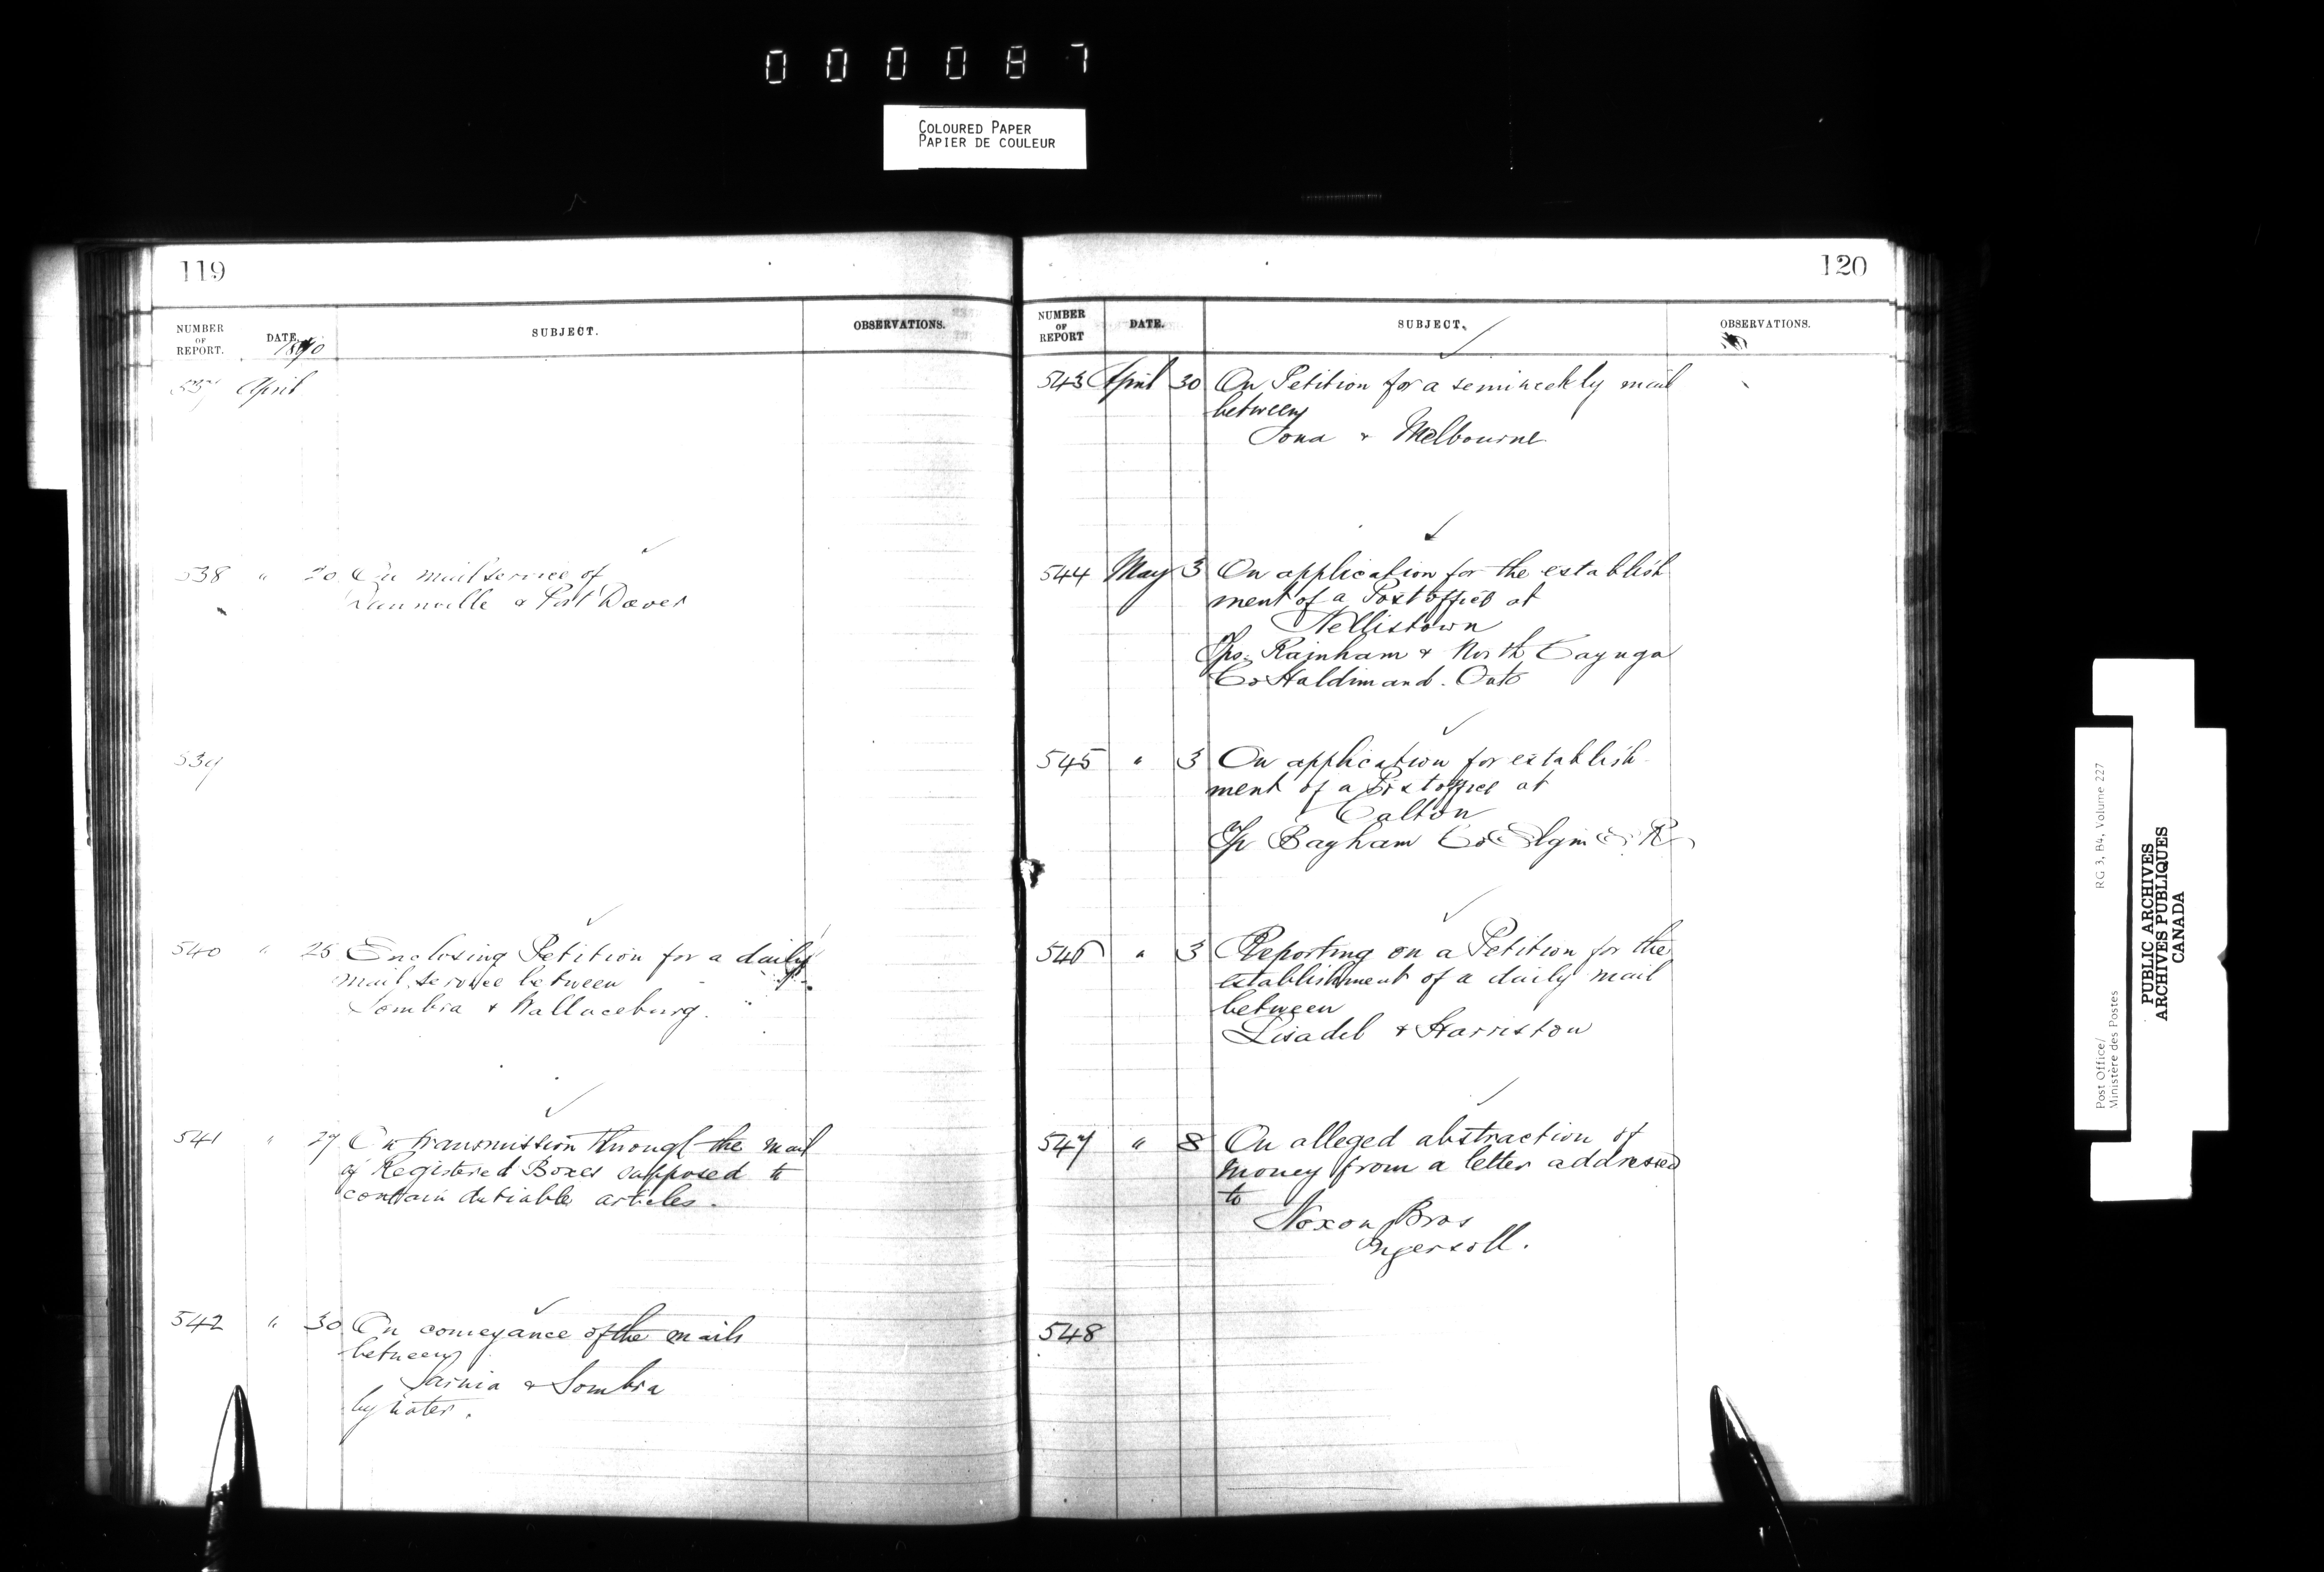 000087
COLOURED PAPER
PAPIER DE COULEUR
119
NUMBER OF REPORT.
DATE.
1870
SUBJECT.
OBSERVATIONS.
537 April
538 " 20 On mail service of
& Port Dover
539
540 " 25 Enclosing Petition for a daily
mail service between
Sombra & Wallaceburg.
541 " 27 On transmission through the mail
of Registered Boxes supposed to
contain dutiable articles.
542 " 30 On conveyance of the mails
between
Sarnia & Sombra
by water.
120
NUMBER OF REPORT
DATE.
SUBJECT.
OBSERVATIONS.
543 April 30 On Petition for a semiweekly mail
between
Iona & Melbourne
544 May 3 On application for the establish
ment of a Postoffice at
Nellistown
Tps. Rainham & North Cayuga
Co Haldimand. Onto
545 " 3 On application for establish-
ment of a Postoffice at
Calton
Tp Bayham Co Elgin E.R
546 " 3 Reporting on a Petition for the
establishment of a daily mail
between
Lisadel & Harriston
547 " 8 On alleged abstraction of
money from a letter addressed
to
Noxon Bros
Ingersoll.
548
Post Office/
Ministère des Postes
RG 3, B4, Volume 227
PUBLIC ARCHIVES
ARCHIVES PUBLIQUES
CANADA